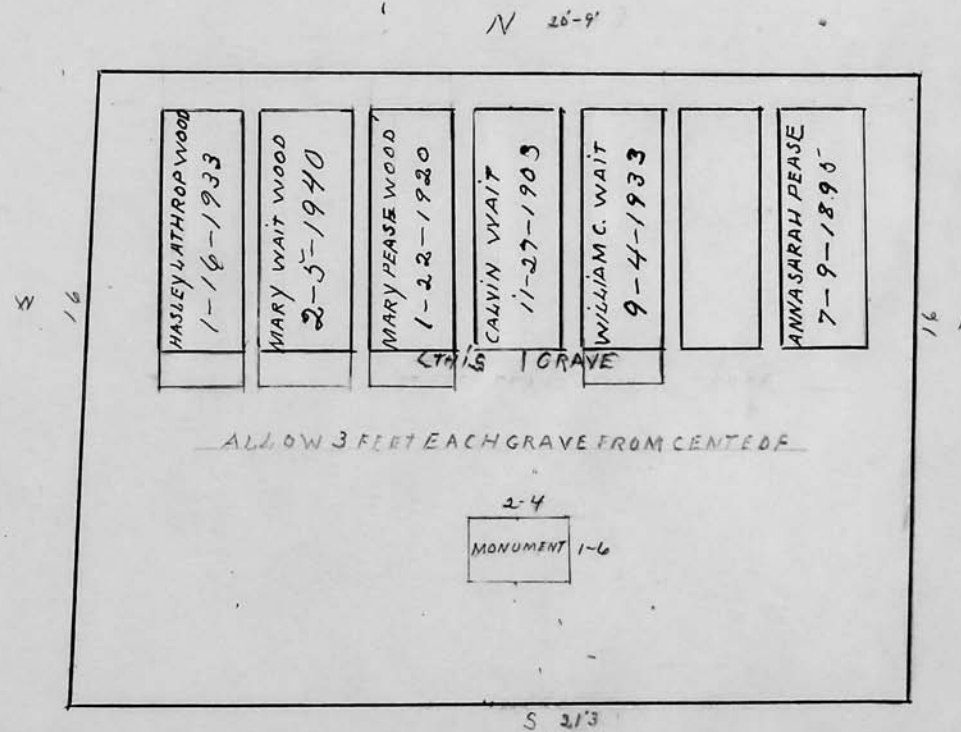 N 20'-9'
HASLEY LATHROP WOOD
1-16-1933
MARY WAIT WOOD
2-5-1940
MARY PEASE WOOD
1-22-1920
CALVIN WAIT
11-27-1903
WILLIAM C. WAIT
9-4-1933
ANNASARAH PEASE
7-9-1895
16
16
THIS 1 GRAVE
ALLOW 3 FEET EACH GRAVE FROM CENTEOF
2-4
MONUMENT 1-6
S 21'3